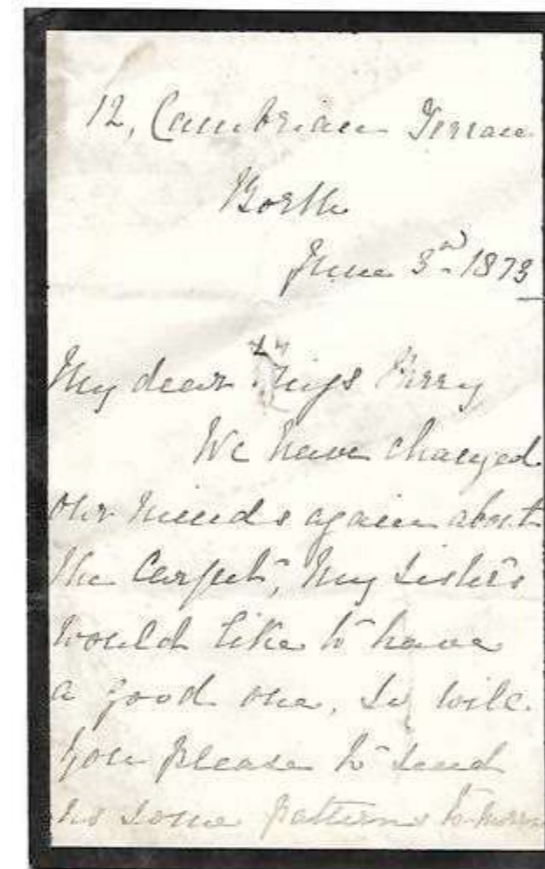 12, Cambrian Terrace
Borth
June 3rd 1873
My dear Perry
We have changed
our minds again about
the carpet, my sisters
would like to have
a good one, so will
you please to send
us some patterns to-morrow